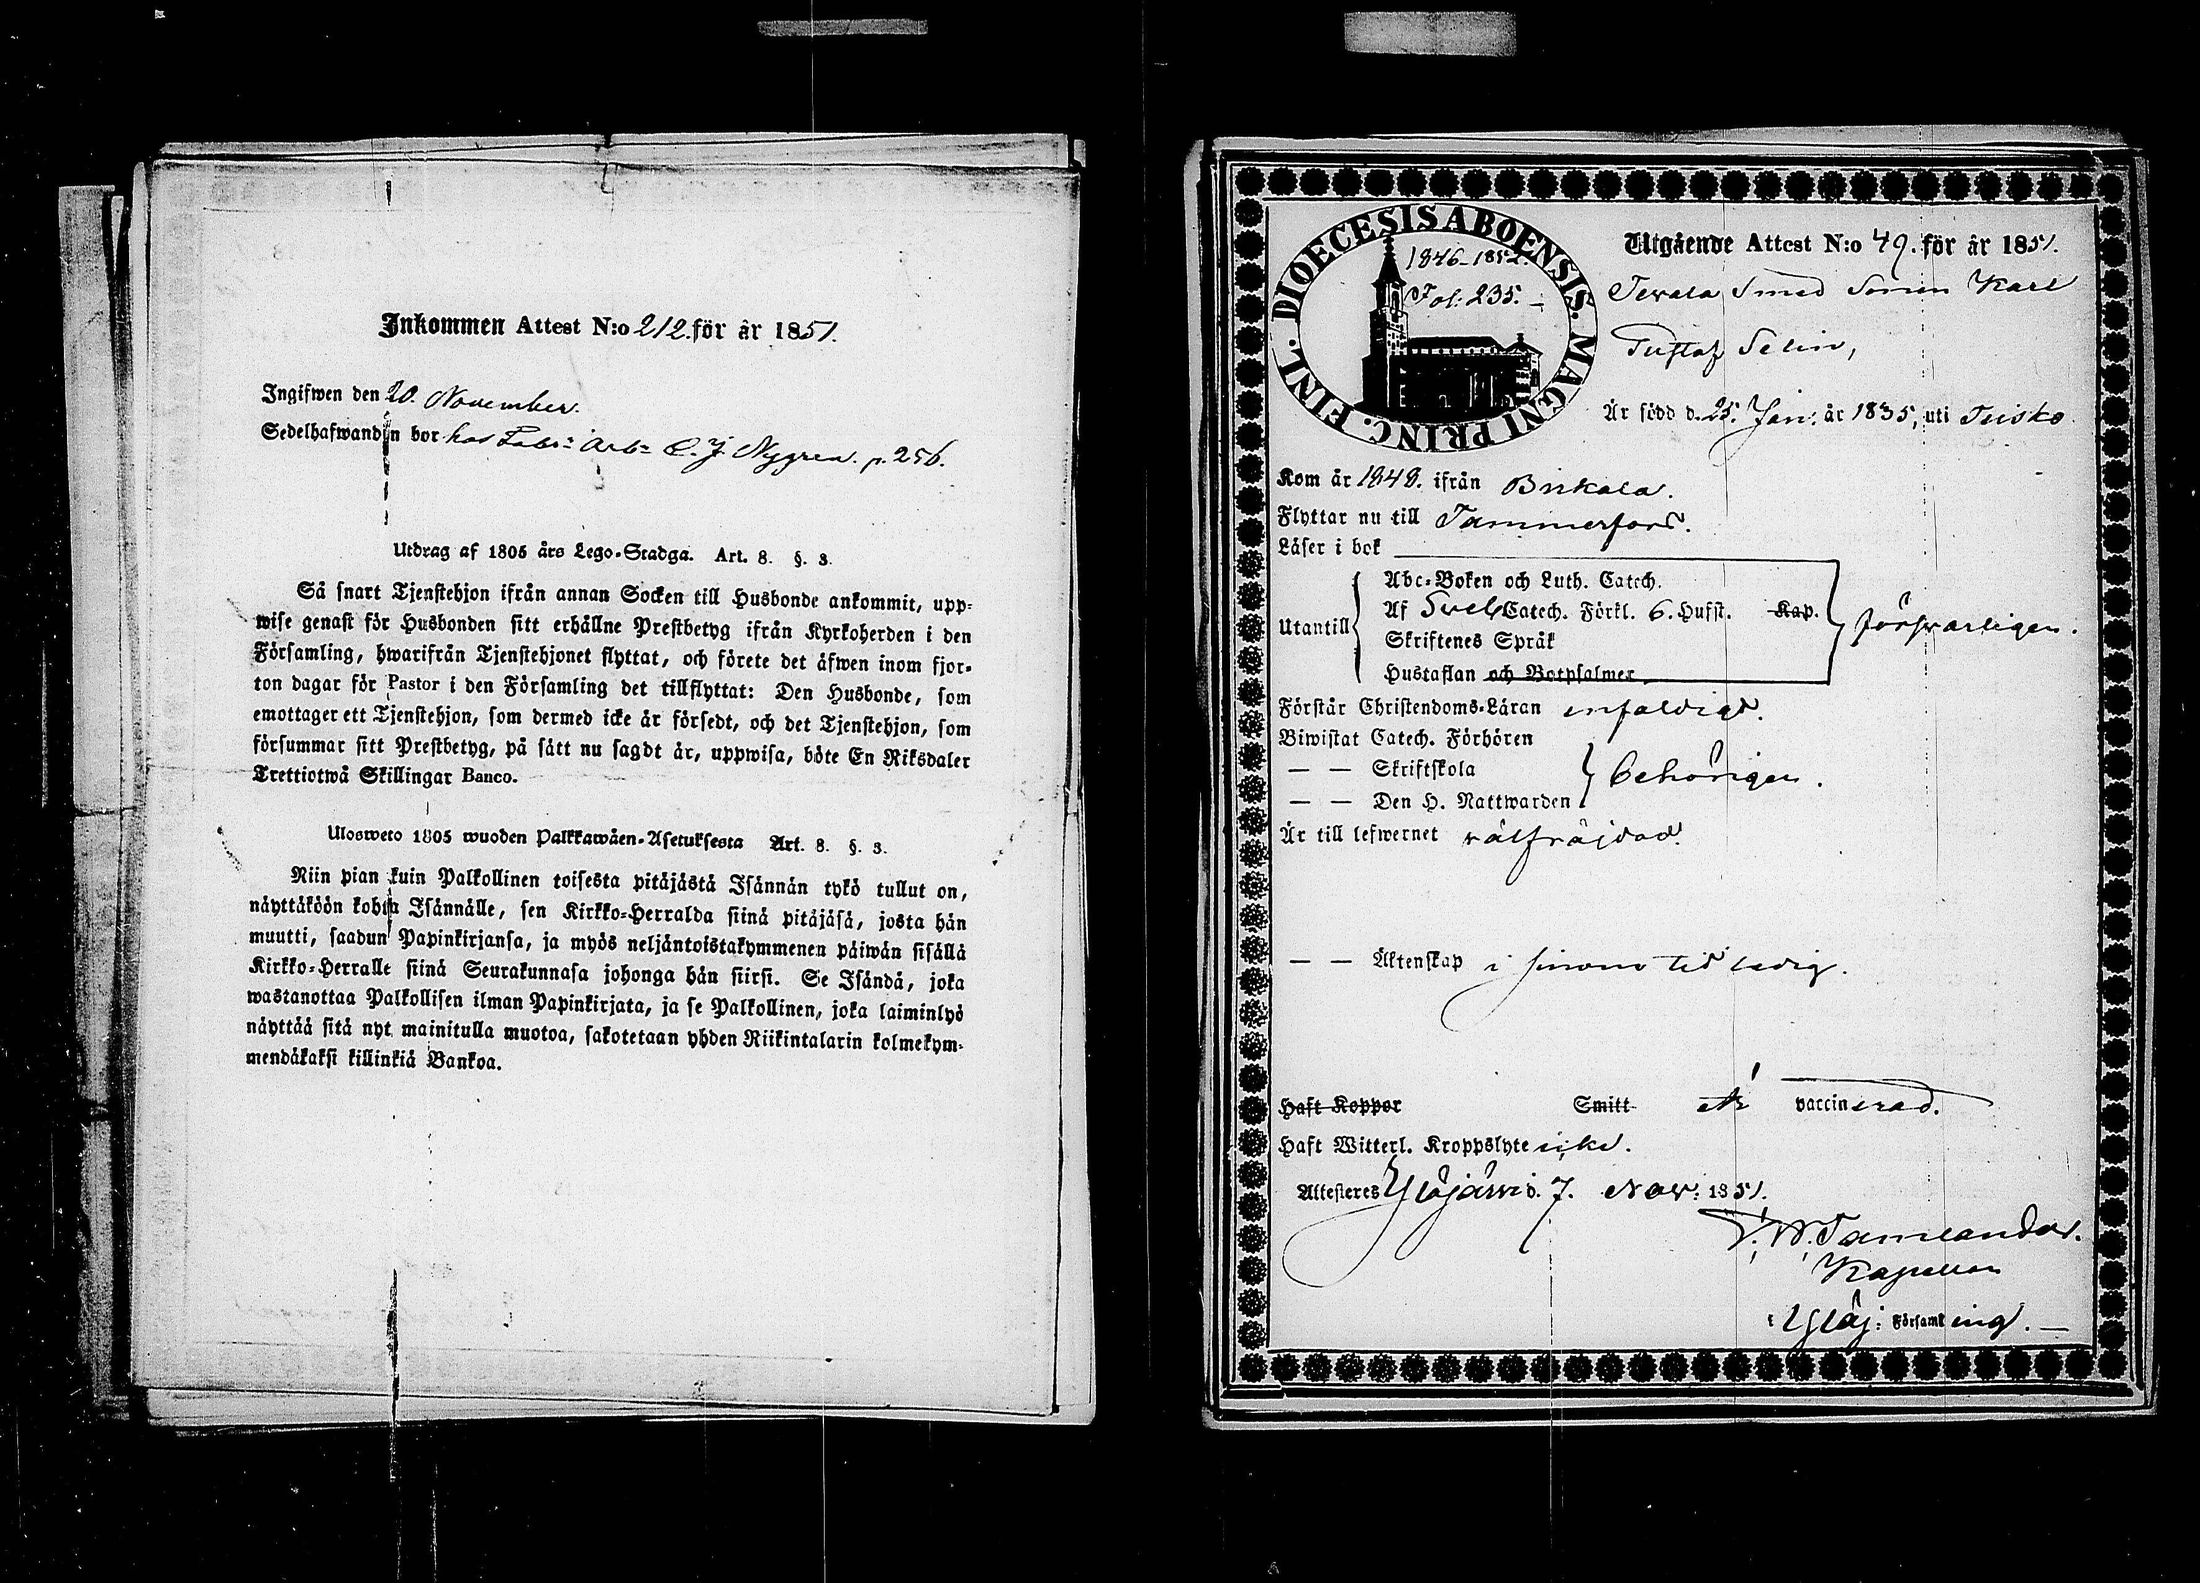 Inkommen Attest N:o 212. för år 1851.
Ingifwen den 20. November.
Sedelhafwanden bor hos Fabr: Arb: C. J. Nygren. p. 256.
Utdrag af 1805 års Lego-Stadga. Art. 8. §. 3.
Så snart Tjenstehjon ifrån annan Socken till Husbonde ankommit, upp-
wise genast för Husbonden sitt erhållne Prestbetyg ifrån Kyrkoherden i den
Församling, hwarifrån Tjenstehjonet flyttat, och förete det äfwen inom fjor-
ton dagar för Pastor i den Församling det tillflyttat: Den Husbonde, som
emottager ett Tjenstehjon, som dermed icke är försedt, och det Tjenstehjon, som
försummar sitt Prestbetyg, på sätt nu sagdt är, uppwisa, böte En Riksdaler
Trettiotwå Skillingar Banco.
Ulosweto 1805 wuoden Palkkawäen-Asetuksesta Art. 8. §. 3.
Niin pian kuin Palkollinen toisesta pitäjästä Isännän tykö tullut on,
näyttäköön kohta Isännälle, sen Kirkko-Herralda siinä pitäjäsä, josta hän
muutti, saadun Papinkirjansa, ja myös neljäntoistakymmenen päiwän sisällä
Kirkko-Herralle siinä Seurakunnasa johonga hän siirsi. Se Isändä, joka
wastanottaa Palkollisen ilman Papinkirjata, ja se Palkollinen, joka laiminlyö
näyttää sitä nyt mainitulla muotoa, sakotetaan yhden Riikintalarin kolmekym-
mendäkaksi killinkiä Bankoa.
DIOECESIS ABOENSIS. MAGNI PRINC. FINL.
1846-1852.
Fol: 235. —
Utgående Attest N:o 49. för år 1851.
Smed Sonen Karl
Gustaf Selin,
Är född d. 25. Jan. år 1835, uti Teisko
Kom år 1848. ifrån Birkala.
Flyttar nu till Tammerfors.
Läser i bok
Utantill
Abc-Boken och Luth. Catech.
Af Sveb. Catech. Förkl. 6. Hufst. Kap.
Skriftenes Språk
Hustaflan och Botpsalmer
försvarligen.
Förstår Christendoms-Läran enfaldigt.
Biwistat Catech. Förhören
— — Skriftskola
— — Den H. Nattwarden
behörigen.
Är till lefwernet välfräjdad.
— — Äktenskap i sinom tid ledig.
Haft Koppor Smitt är vaccinerad.
Haft Witterl. Kroppslyte icke.
Attesteres Ylöjärvi d. 7. Nov: 1851.
Kapellan
i Ylöj: Församling. —